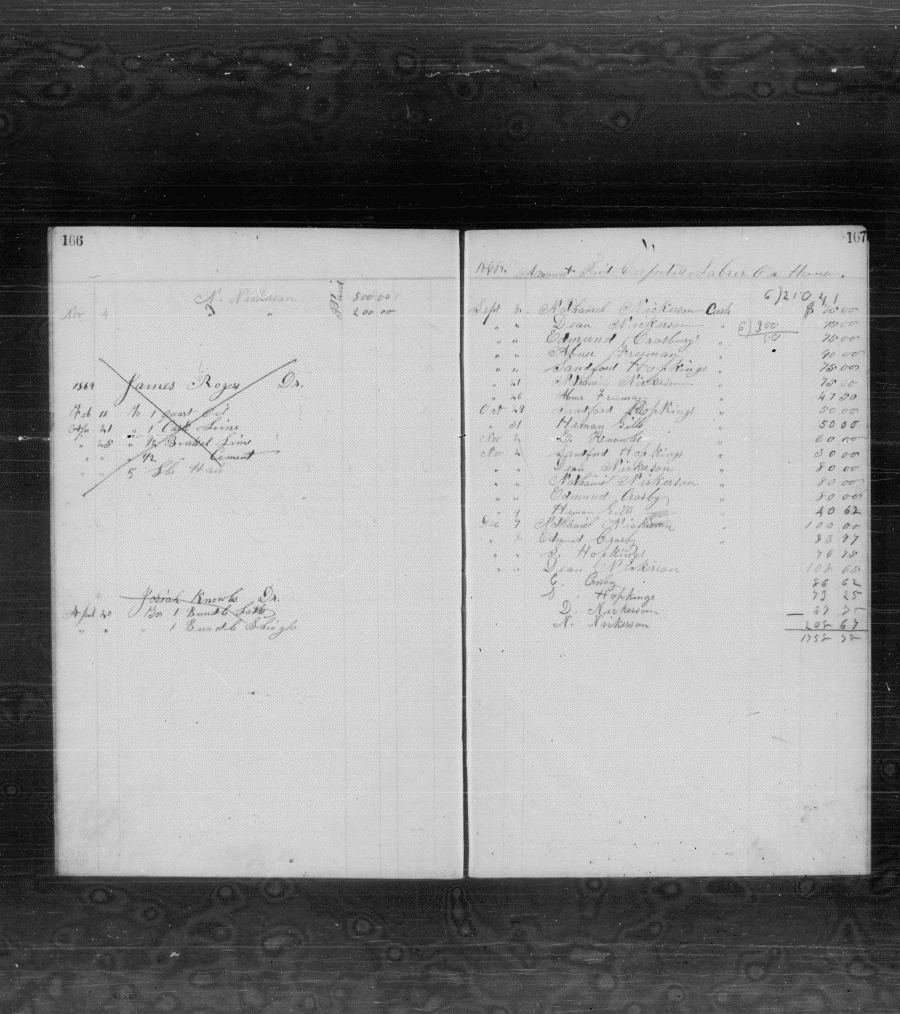 166
N. Nickerson Paid 500 00
Nov 4 " 200 00
1869 James Rogers Dr.
Feb 11 To 1 quart Oil
Apr 21 " 1 Cask Lime
" 28 " 1/2 Bushel Lime
" " " 1/2 " Cement
" " 5 lbs Hair
Josiah Knowls Dr.
April 20 To 1 Bundle Laths
" " " 1 Bundle Shingls
167
Amount Paid Carpenters Labor On House.
6)250,41
Sept Nathaniel Nickerson Cash $ 75 00
" " Dean Nickerson " 6)300 75 00
" " Edmund Crosbury " 50 75 00
" " Abner Freeman " 90 00
" " Sandford Hopkings " 75 00
" 21 Nickerson " 75 00
" 26 Abner Freeman " 47 50
Oct 29 Sandford Hopkings " 50 00
" 31 Heman Gill " 50 00
Nov 2 D. Knowls " 60 00
Nov 2 Sandford Hopkings " 80 00
" " Dean Nickerson " 80 00
" " Nathaniel Nickerson " 80 00
" " Edmund Crosby 80 00
" 9 Heman Gill " 40 62
Dec 7 Nathaniel Nickerson " 100 00
" 8 Edmund Crosby " 83 97
" " S. Hopkings 76 78
" " Dean Nickerson
E. Crosby 86 62
S. Hopkings 73 25
D. Nickerson
N. Nickerson 208 67